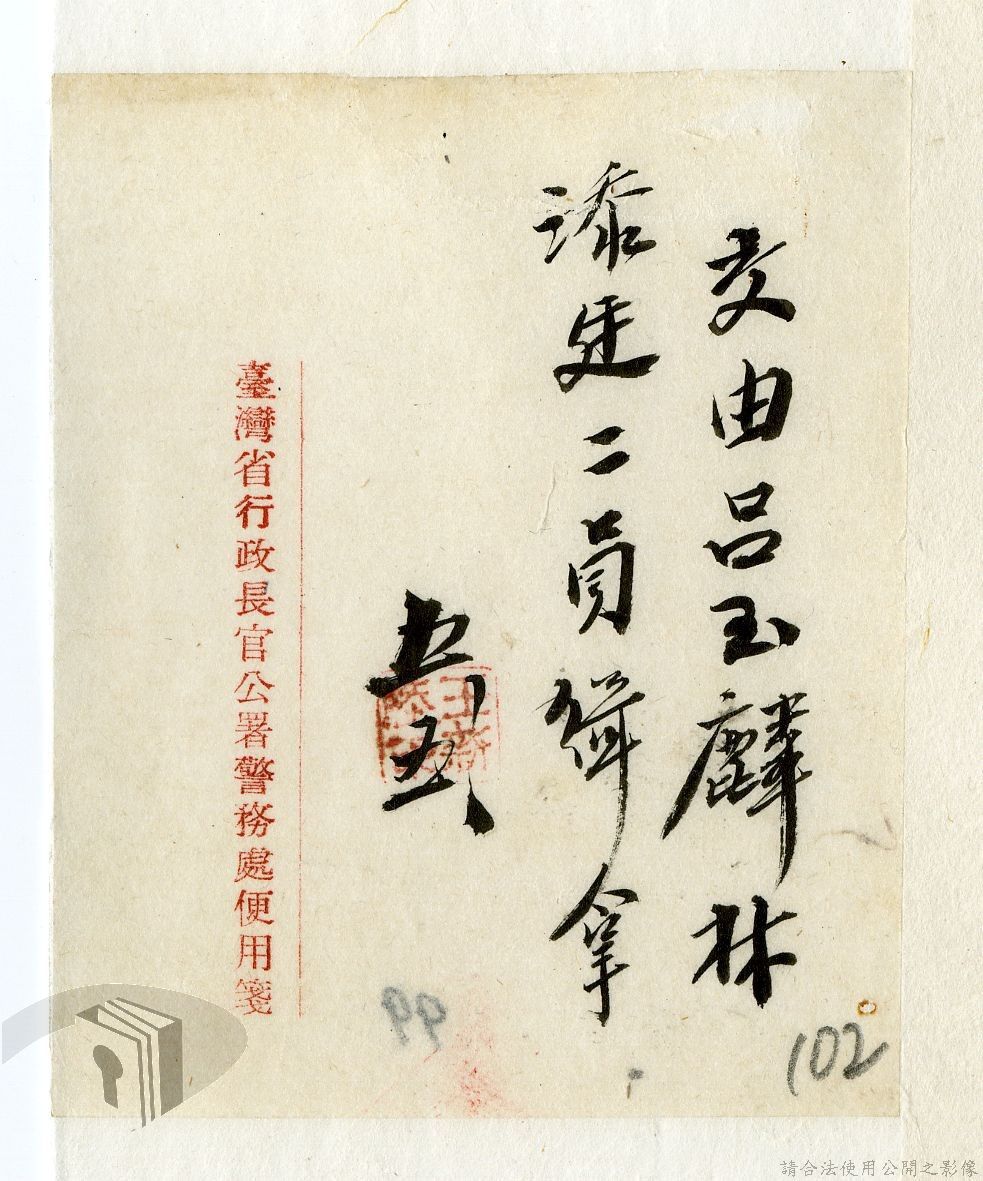 交由呂玉麟林
添廷二員緝拿
臺灣省行政長官公署警務處便用箋
102
請合法使用公開之影像